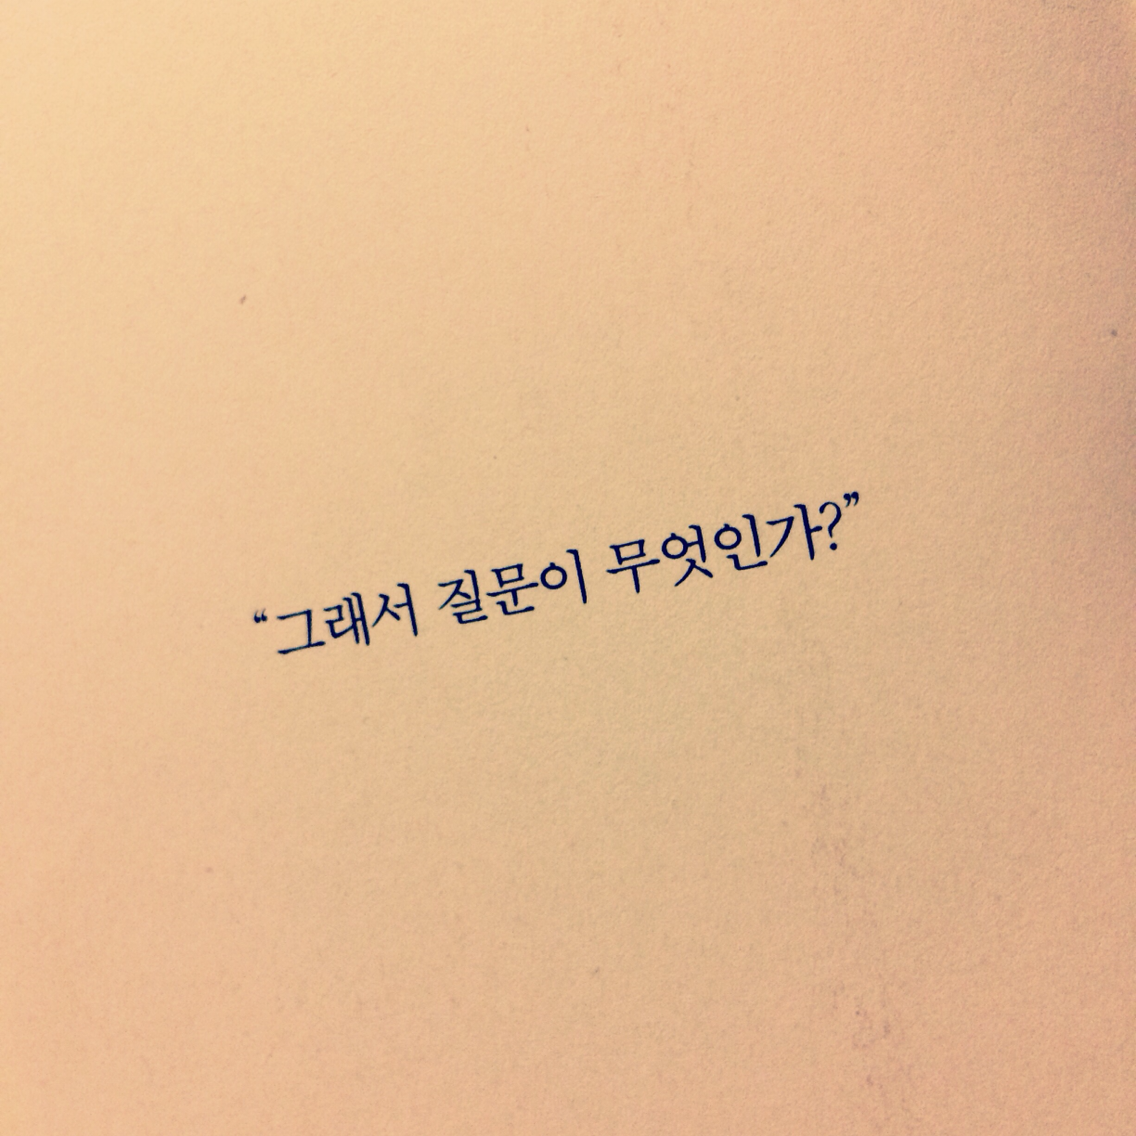 “그래서 질문이 무엇인가?”